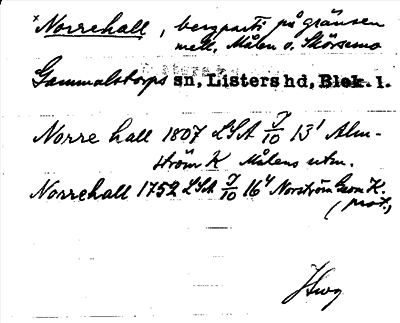 * Norrehall, bergparti på gränsen
mell. Målen o. Skörsemo
Gammalstorps sn, Listers hd, Blek. l.
Norre hall 1807 LSA J/10 13¹ Alm-
ström K Målens utm.
Norrehall 1752 LSA J/10 16⁴ Norström Geom K.
(prot.)